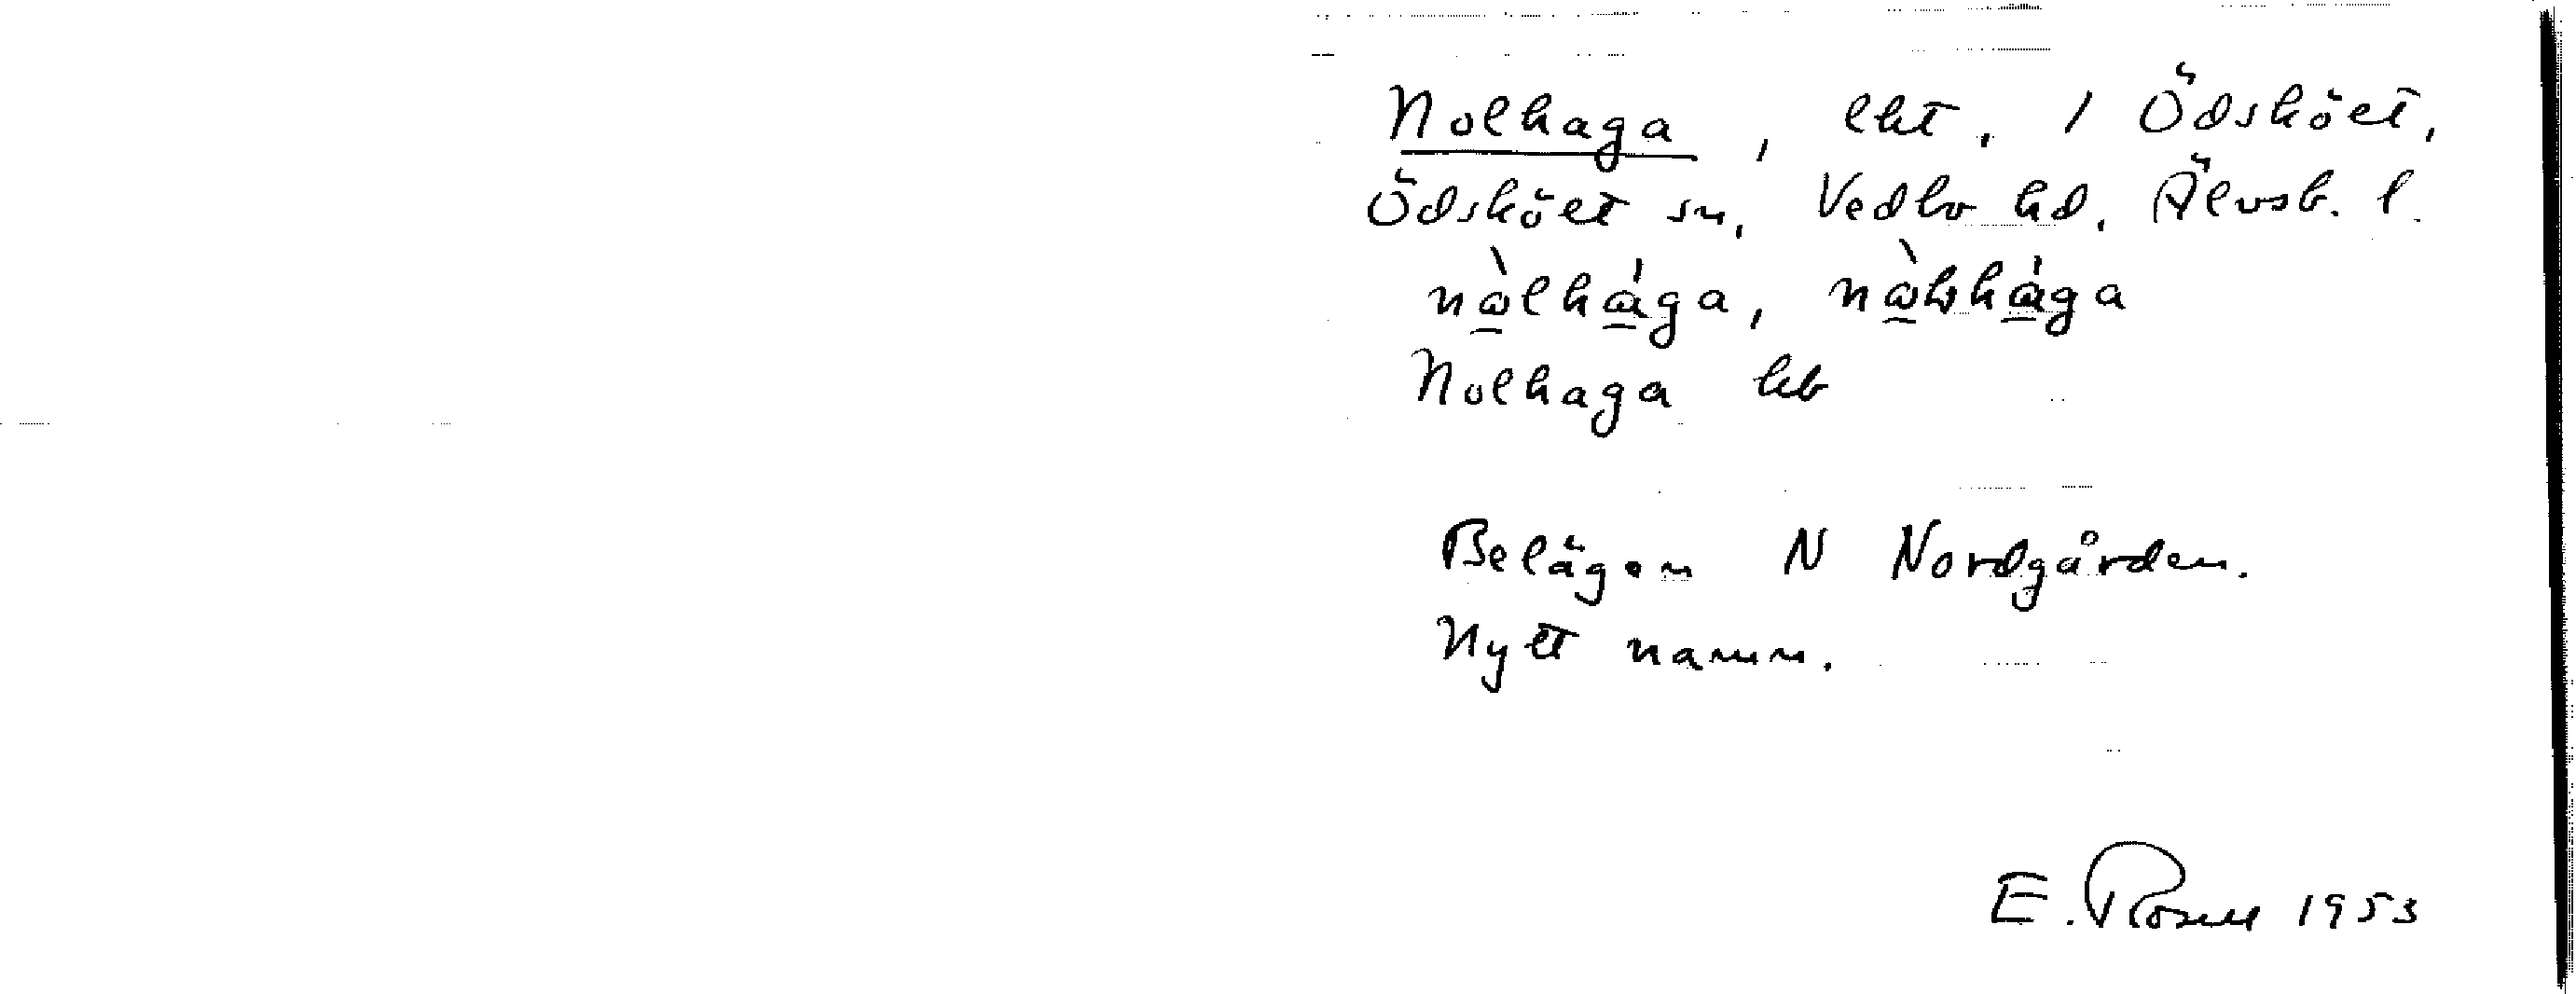 Nolhaga, lht. 1 Ödsköet,
Ödsköet sn, Vedbo hd. Älvsb. l.
Nolhaga kb
Belägen N Nordgården.
Nytt namn.
E. Rosell 1953